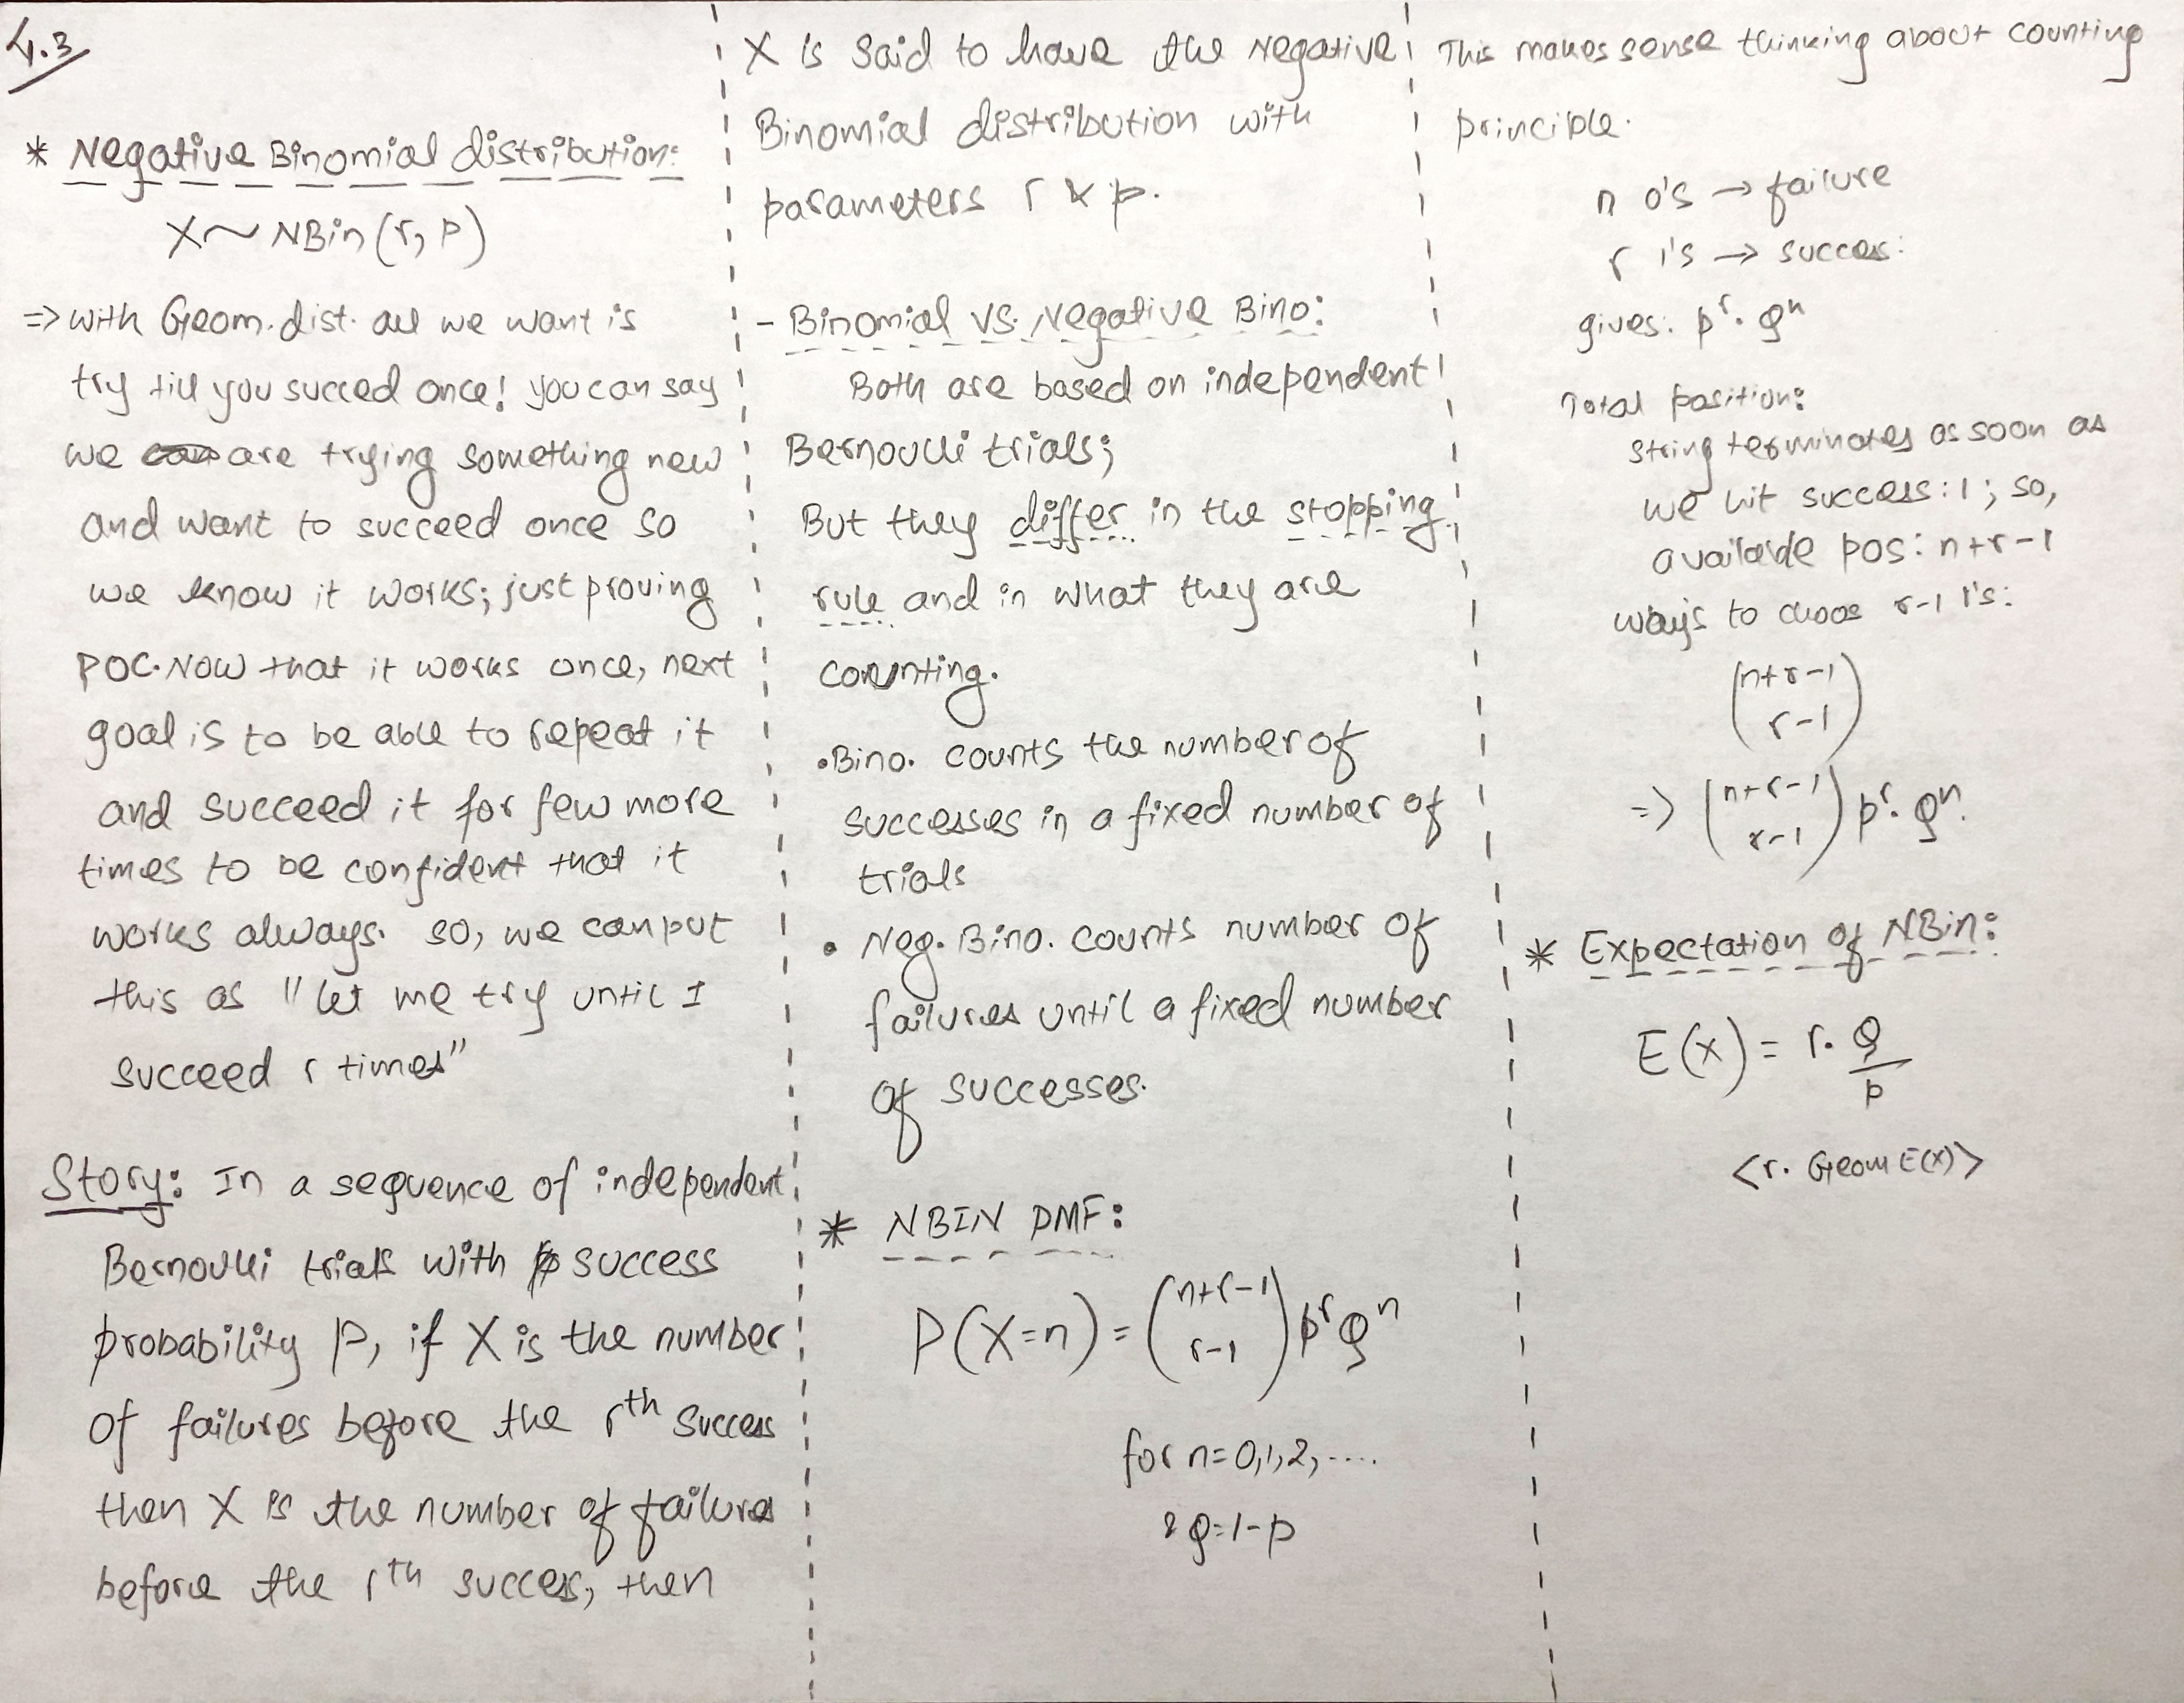 4.3
* Negative Binomial distribution:
X ~ NBin(r, p)
=> with Geom. dist. all we want is
try till you succed once! you can say
we are trying something new
and want to succeed once so
we know it works; just proving
POC. Now that it works once, next
goal is to be able to repeat it
and succeed it for few more
times to be confident that it
works always. so, we can put
this as "let me try until I
succeed r times"
Story: In a sequence of independent
Bernoulli trials with success
probability p, if X is the number
of failures before the rth success
then X is the number of failures
before the rth succes, then
X is said to have the Negative
Binomial distribution with
parameters r & p.
- Binomial vs. Negative Bino:
Both are based on independent
Bernoulli trials;
But they differ in the stopping
rule and in what they are
counting.
• Bino. counts the number of
successes in a fixed number of
trials
• Neg. Bino. counts number of
failures until a fixed number
of successes.
* NBIN PMF:
P(X=n) = (n+r-1 r-1) p^r q^n
for n=0,1,2,....
& q=1-p
This makes sense thinking about counting
principle.
n 0's → failure
r 1's → succes:
gives: p^r . q^n
Total position:
string terminates as soon as
we hit success: 1; so,
available pos: n+r-1
ways to choos r-1 1's:
(n+r-1 r-1)
=> (n+r-1 r-1) p^r . q^n.
* Expectation of NBin:
E(X) = r. q/p
<r. Geom E(X)>